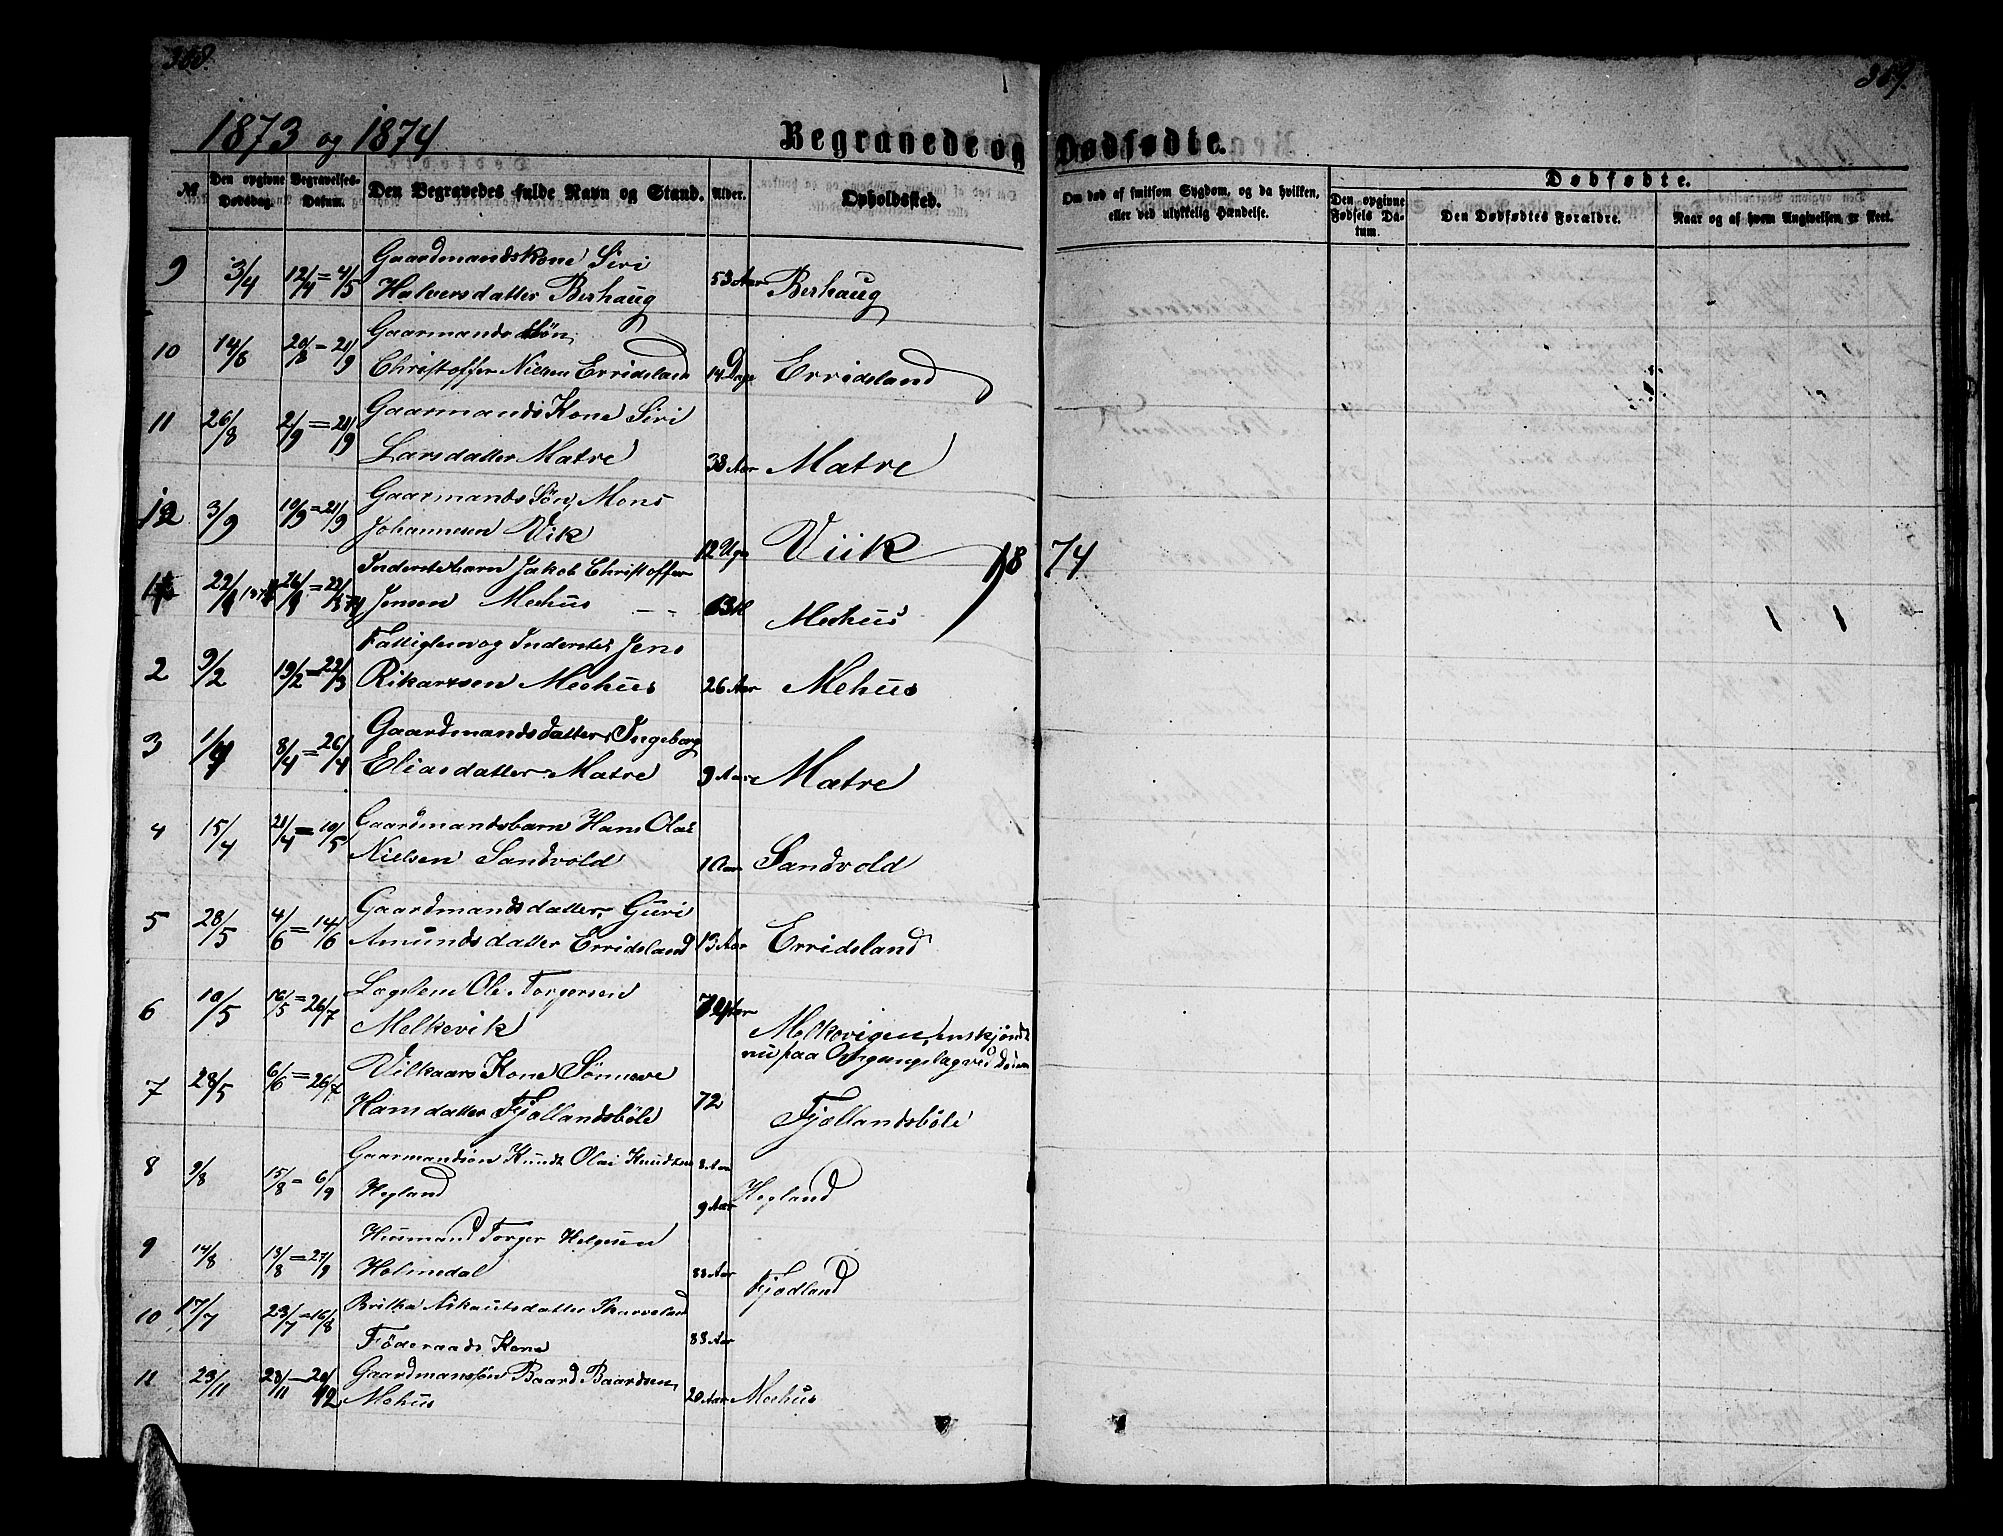 308.
309.
1873 og 1874
Begravede og Dødfødte.
№
Den opgivne Dødsdag.
Begravelses-Datum.
Den Begravedes fulde Navn og Stand.
Alder.
Opholdssted.
Om død af smitsom Sygdom, og da hvilken,
eller ved ulykkelig Hændelse.
Dødfødte.
Den opgivne Fødsels Datum.
Den Dødfødtes Forældre.
Naar og af hvem Angivelsen er skeet.
9 3/4 12/4 = 4/5 Gaardmandskone Siri
Halversdatter Berhaug 53 Aar Berhaug
10 14/8 20/8 = 21/9 Gaarmands Søn
Christoffer Nielsen Erridsland 14 Dage Erridsland
11 26/8 2/9 = 21/9 Gaarmands Kone Siri
Larsdatter Matre 38 Aar Matre
12 3/9 10/9 = 21/9 Gaarmands Søn Mons
Johannesen Vik 12 Uge Viik
1874
1 Inderstebarn Jakob Christoffer
Jensen Mehus Mehus
2 9/2 19/2 = 22/3 Inderste Jens
Rikartsen Mehus 26 Aar Mehus
3 8/4 = 26/4 Gaardmandsdatter Ingeborg
Eliasdatter Matre 9 Aar Matre
4 15/4 21/4 = 10/5 Gaardmandsbarn Hans Olai
Nielsen Sandvold 1 Aar Sandvold
5 28/5 4/6 = 14/6 Gaardmandsdatter Guri
Amundsdatter Erridsland 13 Aar Erridsland
6 10/5 16/5 = 26/7 Lægslem Ole Torgersen
Melkevik Melkevigen, enskjøndt
nu paa Omgangslæg ved
7 28/5 6/6 = 26/7 Vilkaars Kone Sønneve
Hansdatter Fjællandsbøle 72 Fjællandsbøle
8 9/8 15/8 = 6/9 Gaarmandsøn Knudt Olai Knudtsen
Hegland 9 Aar Hegland
9 14/8 18/8 = 27/9 Huusmand Torger Helgesen
Holmedal 88 Aar Fjødland
10 17/7 23/7 = 16/8 Britha Nikautsdatter Skarveland
Føderaads Kone 88 Aar
11 23/11 28/11 = 20/12 Gaardmansøn Baard Baardsen
Mehus 20 Aar Mehus